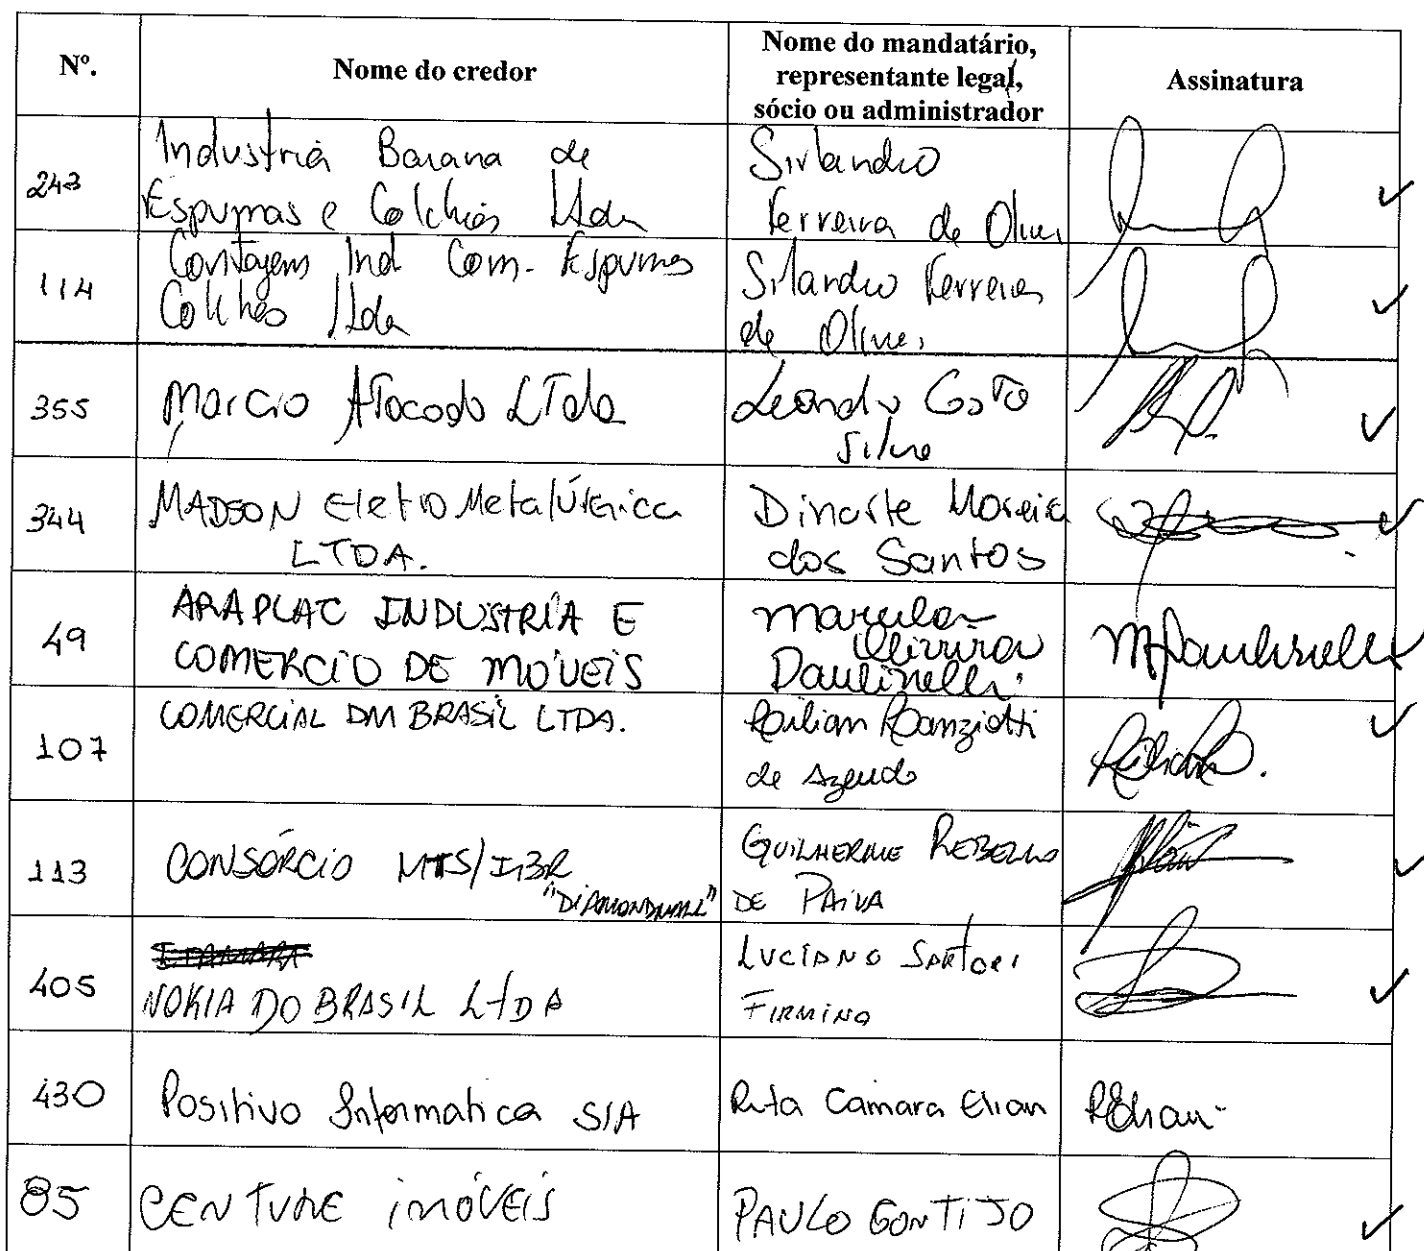 Nº.
Nome do credor
Nome do mandatário,
representante legal,
sócio ou administrador
Assinatura
243
Industria Baiana de
Espumas e Colchões Ltda
Sirlandro
Ferreira de Olivei
114
Contagem Ind Com. Espumas
Colchões Ltda
Silandro Ferreira
de Olivei
355
Marcio Atacado LTda
Leandro Costa
Silva
344
MADSON EletroMetalÚrGica
LTDA.
Dinarte Moreira
dos Santos
49
ARAPLAC INDUSTRIA E
COMERCIO DE MOVEIS
Marcela
Oliveira
Paulinelli
MPaulinelli
107
COMERCIAL DM BRASIL LTDA.
Ranziotti
de Azevedo
113
CONSÓRCIO MTS/IBR
"DIAMONDMALL"
GUILHERME REBELLO
DE PAIVA
405
NOKIA DO BRASIL LtDA
LUCIANO SARTORI
FIRMINO
430
Positivo Informatica S/A
Rita Camara Elian
RElian
85
CENTURE iMÓVEIS
PAULO GONTIJO